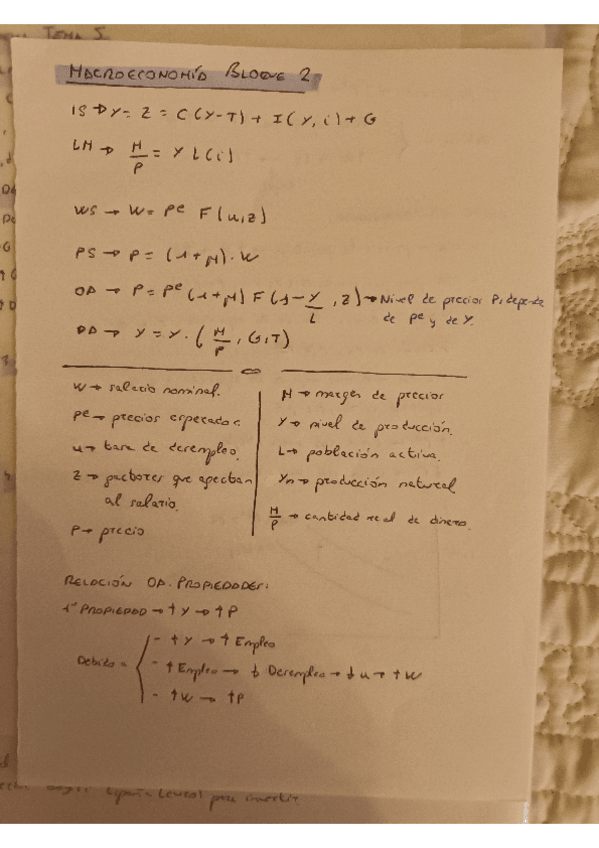 TEMA 5.
MACROECONOMÍA BLOQUE 2
IS → Y = Z = C(Y-T) + I(Y, i) + G
LM → M/P = Y L(i)
WS → W = Pe F(u,z)
PS → P = (1+M)·W
OA → P = Pe (1+M) F(1-Y/L, Z) → Nivel de precios P, depende
de Pe y de Y.
DA → Y = Y·(M/P, G, T)
W → salario nominal.
Pe → precios esperados
u → tasa de desempleo.
Z → factores que afectan
al salario.
P → precio
M → margen de precios
Y → nivel de producción.
L → población activa.
Yn → producción natural
M/P → cantidad real de dinero.
RELACIÓN OA. PROPIEDADES:
1ª PROPIEDAD → ↑Y → ↑P
Debido a
- ↑Y → ↑Empleo
- ↑Empleo → ↓ Desempleo → ↓u → ↑W
- ↑W → ↑P
para invertir